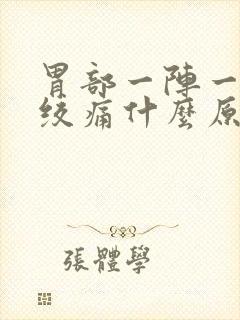 胃部一陣一
絞痛什麼原
張體學